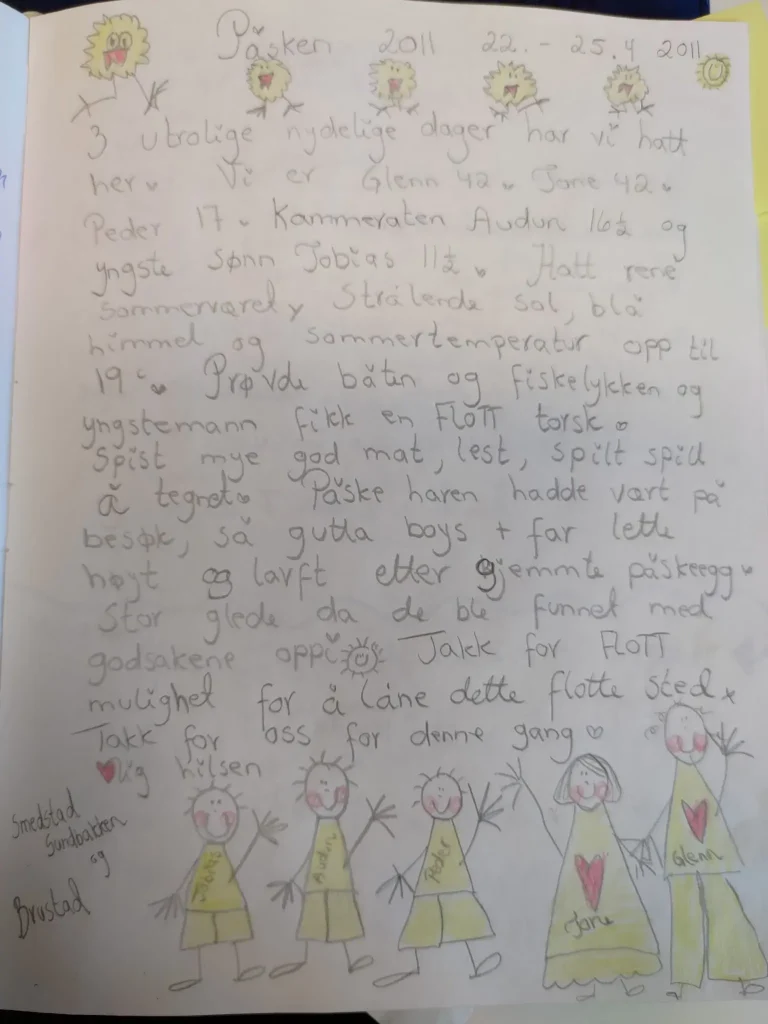 Påsken 2011 22. - 25.4 2011
3 utrolige nydelige dager har vi hatt
her. Vi er Glenn 42. Jane 42.
Peder 17. Kammeraten Audun 16½ og
yngste sønn Tobias 11½. Hatt rene
sommerværet, Strålende sol, blå
himmel og sommertemperatur opp til
19°. Prøvde båten og fiskelykken og
yngstemann fikk en FLOTT torsk.
Spist mye god mat, lest, spilt spill
å tegnet. Påske haren hadde vært på
besøk, så gutta boys + far lette
høyt og lavft etter gjemmte påskeegg.
Stor glede da de ble funnet med
godsakene oppi. Takk for FLOTT
mulighet for å låne dette flotte sted
Takk for oss for denne gang ♡
♥lig hilsen
Smedstad
Sundbakken
og
Brustad
Tobias Audun Peder Jane Glenn